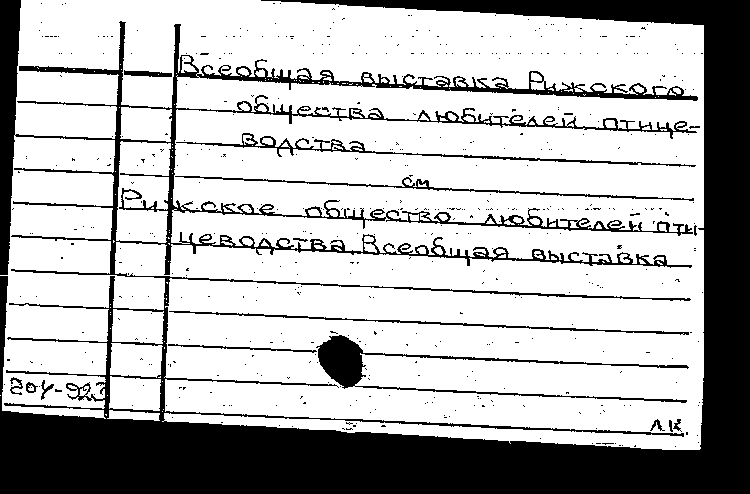 Всеобщая выставка Рижского
общества любителей птице-
водства
см
Рижское общество любителей пти-
цеводства. Всеобщая выставка
л.к.